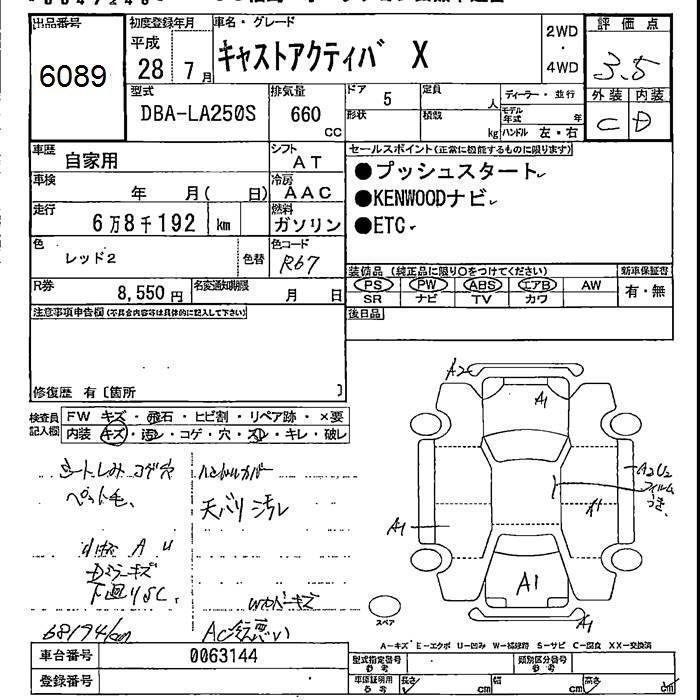 出品番号
6089
初度登録年月
平成
28 7月
車名・グレード
キャストアクティバ X
2WD
・
4WD
評価点
3.5
外装 内装
C D
型式
DBA-LA250S
排気量
660
CC
ドア 5
形状
定員 人
積載 kg
ディーラー・並行
モデル年式 年
ハンドル 左・右
車歴
自家用
シフト
AT
車検
年 月( 日)
冷房
AAC
走行
6万8千192 km
燃料
ガソリン
色
レッド2
色替
色コード
R67
R券
8,550円
名変通知期限
月 日
セールスポイント(正常に機能するものに限ります)
●プッシュスタート
●KENWOODナビ
●ETC
装備品 (純正品に限り○をつけてください)
新車保証書
PS PW ABS エアB AW
SR ナビ TV カワ
有・無
後日品
注意事項申告欄(不具合内容等は具体的に記入して下さい)
修復歴 有〔箇所 〕
検査員
記入欄
FW キズ・飛石・ヒビ割・リペア跡・×要
内装 キズ・汚レ・コゲ・穴・スレ・キレ・破レ
シートしみ コゲ穴
ハンドルカバー
ペット毛、
天バリ汚レ
小キズ A U
Dミラーキズ
下廻りSC.
Wカバーキズ
68194km
AC冷え悪い
A2
A1
A2U2
フィルム
つき
A1
A1
A1
A1
スペア
A-キズ E-エクボ U-凹み W-補修跡 S-サビ C-腐食 XX-交換済
車台番号
0063144
登録番号
型式指定番号
参考
類別区分番号
参考
車庫証明用
参考
長さ cm 幅 cm 高さ cm